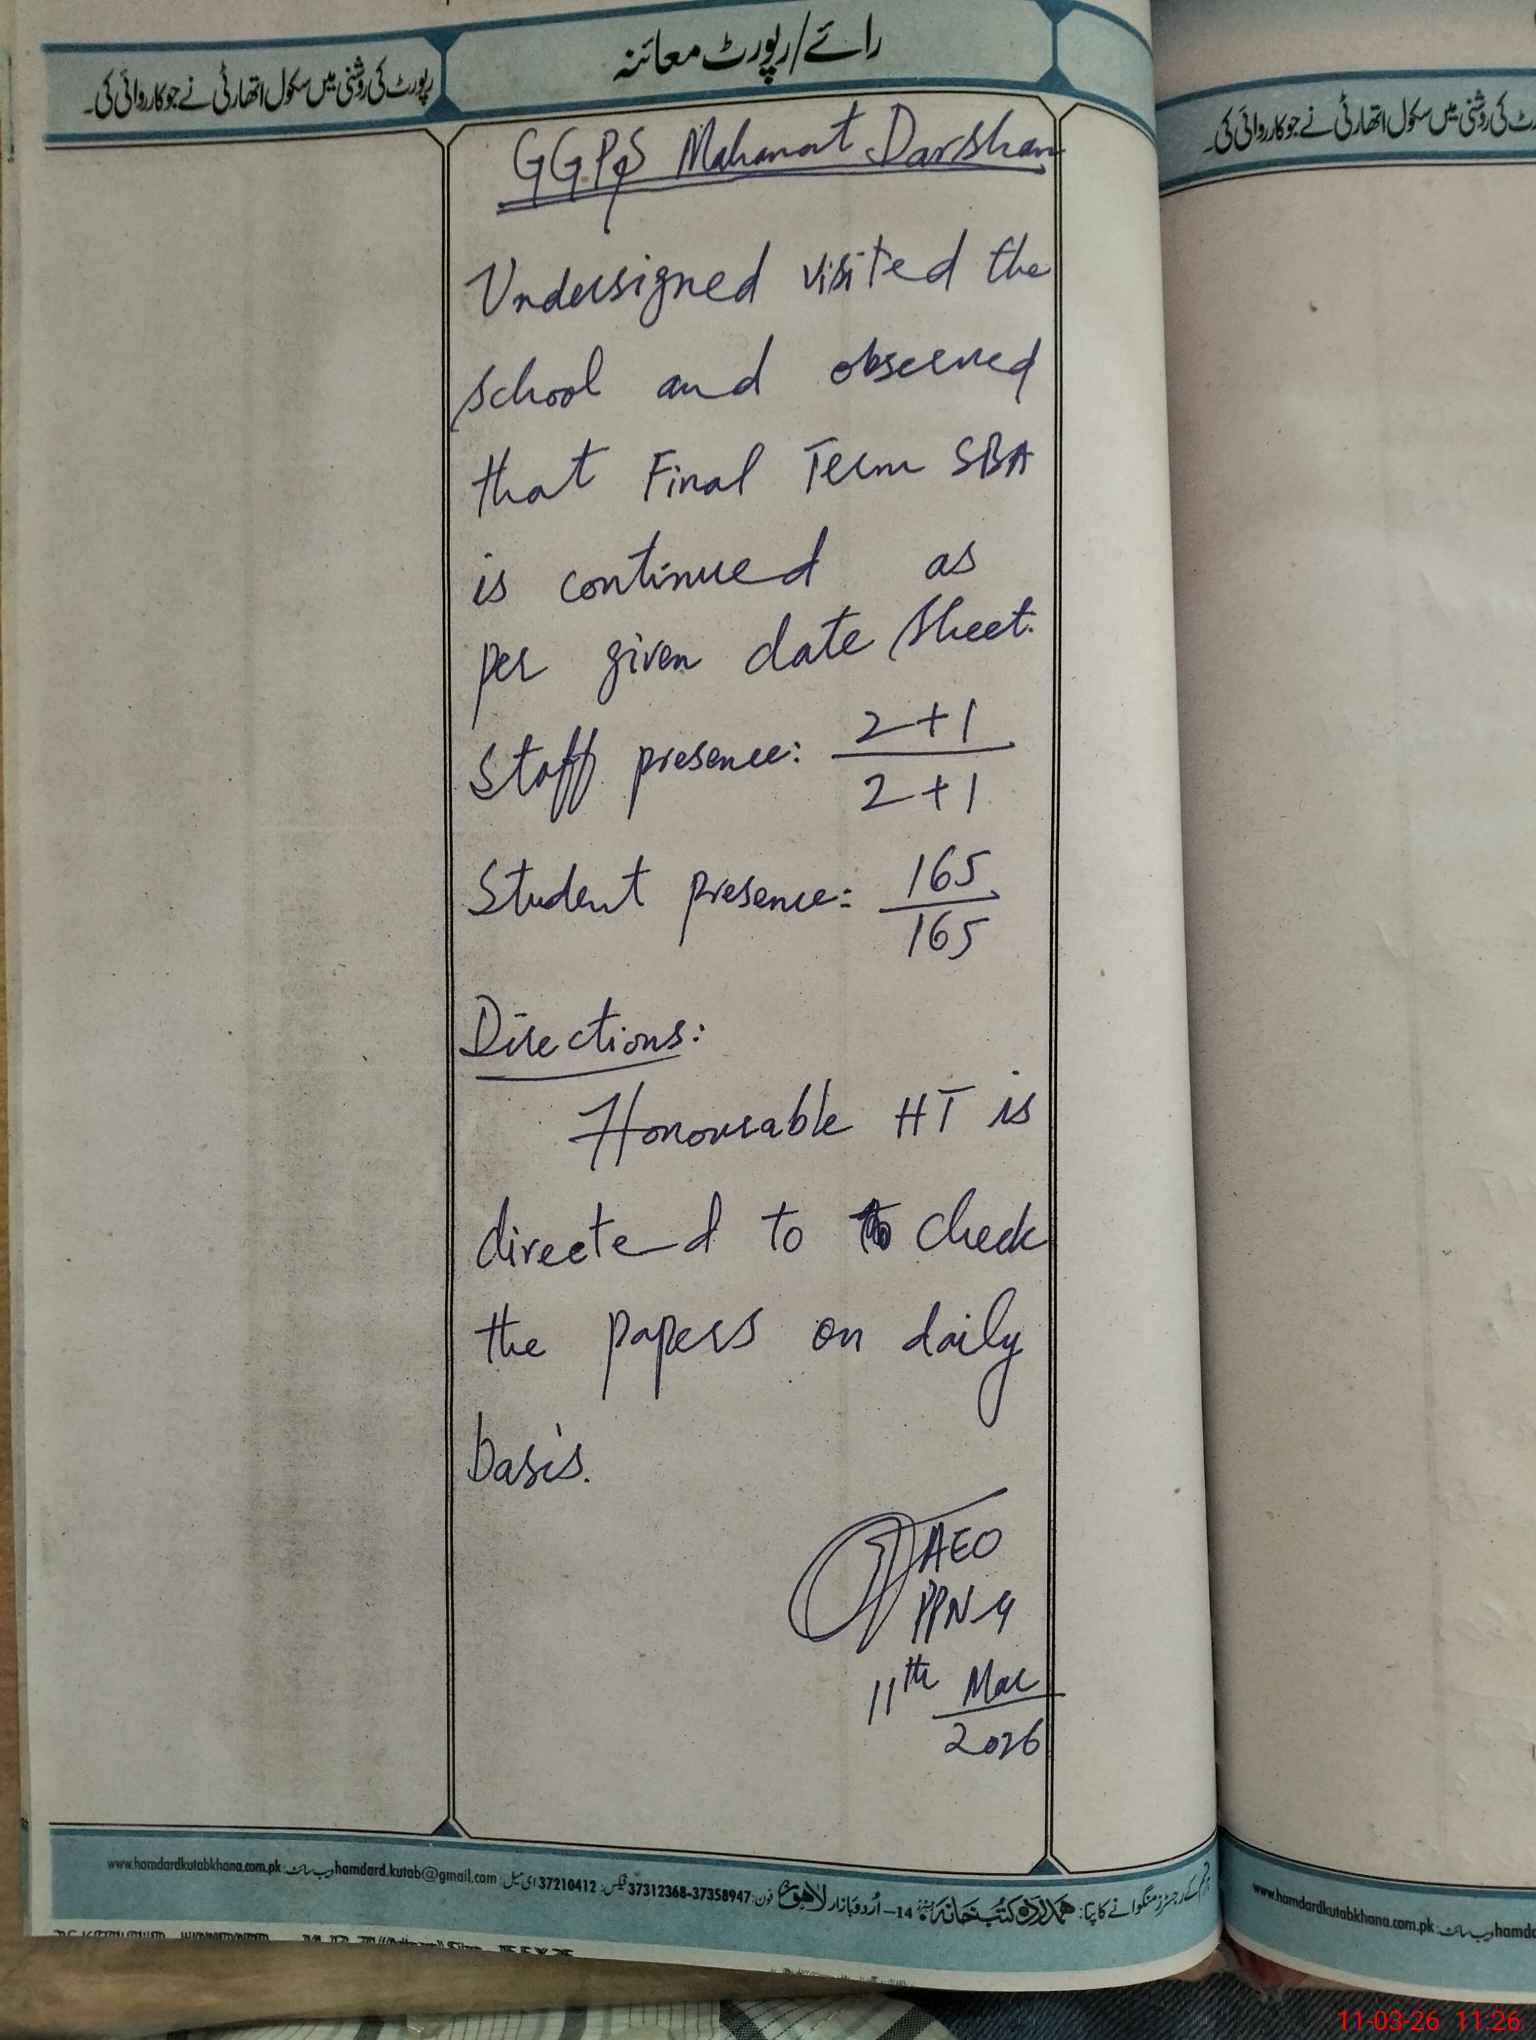 رائے/رپورٹ معائنہ
رپورٹ کی روشنی میں سکول اتھارٹی نے جو کارروائی کی۔
GGPS Mahanat Darshan
Undersigned visited the
school and observed
that Final Term SBA
is continued as
per given date sheet.
Staff presence: 2+1
2+1
Student presence: 165
165
Directions:
Honourable HT is
directed to to check
the papers on daily
basis.
AEO
11th Mar
2026
کے رجسٹرز منگوانے کا پتا: ہمدرد کتب خانہ 14-اُردو بازار لاہور فون: 37312368-37358947 فیکس: 37210412 ای میل: hamdard.kutab@gmail.com ویب سائٹ: www.hamdardkutabkhana.com.pk
رٹ کی روشنی میں سکول اتھارٹی نے جو کارروائی کی۔
www.hamdardkutabkhana.com.pk ویب سائٹ
11-03-26 11:26